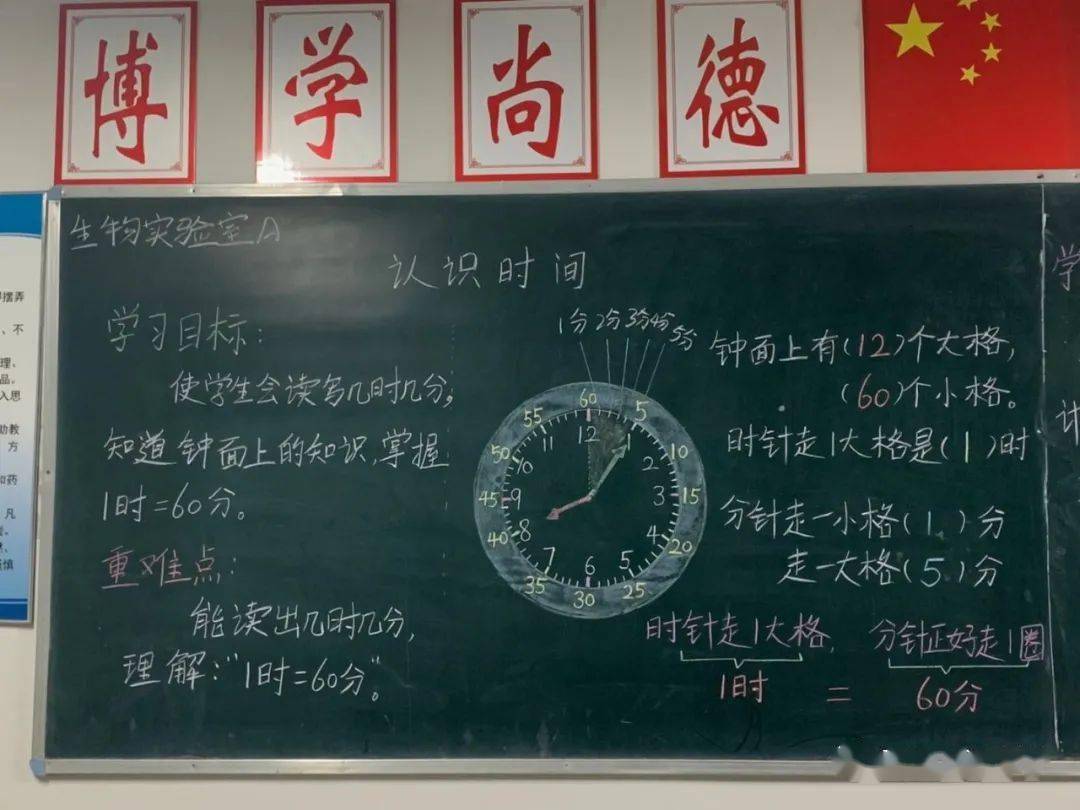 博 学 尚 德
生物实验室A
认识时间
学习目标:
使学生会读写几时几分,
知道钟面上的知识,掌握
1时=60分。
重难点:
能读出几时几分,
理解:"1时=60分"。
1分 2分 3分 4分 5分
60 5 10 15 20 25 30 35 40 45 50 55
12 1 2 3 4 5 6 7 8 9 10 11
钟面上有(12)个大格,
(60)个小格。
时针走1大格是(1)时
分针走一小格(1)分
走一大格(5)分
时针走1大格, 分针正好走1圈
1时 = 60分
学
计
摆弄
、不
理、
品。
入思
助教
方
和药
凡
慎